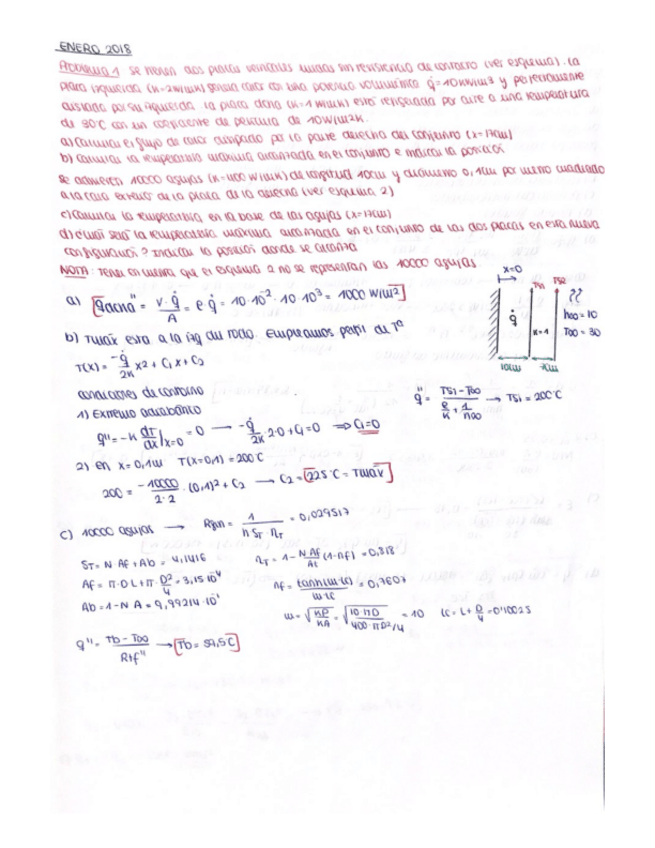 ENERO 2018
Problema 1 Se tienen dos placas verticales unidas sin resistencia de contacto (ver esquema). La
placa izquierda (k=2W/mK) genera calor con una potencia volumétrica q̇=10kW/m3 y perfectamente
aislada por su izquierda. La placa dcha (k=1 W/mK) está refrigerada por aire a una temperatura
de 30°C con un coeficiente de película de 10W/m²K.
a) Calcular el flujo de calor disipado por la parte derecha del conjunto (x=17cm)
b) Calcular la temperatura máxima alcanzada en el conjunto e indicar la posición
Se adhieren 10000 agujas (k=400 W/mK) de longitud 10cm y diámetro 0,1cm por metro cuadrado
a la cara exterior de la placa de la derecha (ver esquema 2)
c) Calcular la temperatura en la base de las agujas (x=17cm)
d) ¿Cuál será la temperatura máxima alcanzada en el conjunto de las dos placas en esta nueva
configuración? Indicar la posición donde se alcanza
NOTA: Tener en cuenta que el esquema 2 no se representan las 10000 agujas.
x=0
Ts1 Ts2
q̇
k=1
10cm 7cm
??
h∞=10
T∞=30
a) qdcha'' = V·q̇/A = e q̇ = 10·10⁻²·10·10³ = 1000 W/m²
b) Tmáx está a la izq del todo. Empleamos perfil de Tª
T(x) = -q̇/2k x² + C₁x + C₂
q'' = (Ts1-T∞)/(e/k + 1/h∞) → Ts1 = 200°C
condiciones de contorno
1) Extremo adiabático
q'' = -k dT/dx|x=0 = 0 → -q̇/2k ·2·0 + C₁ = 0 ⇒ C₁=0
2) en x=0,1m T(x=0,1) = 200°C
200 = -10000/2·2 ·(0,1)² + C₂ → C₂ = 225°C = Tmáx
c) 10000 agujas → Rfin = 1/(h ST·ηT) = 0,029517
ST = N·Af + Ab = 4,1416
ηT = 1 - N Af/At (1-ηf) = 0,818
Af = π·D·L + π·D²/4 = 3,15·10⁻⁴
ηf = tanh(mLc)/mLc = 0,7607
Ab = 1-N·A = 9,99214·10⁻¹
m = √(hP/kA) = √(10·πD/(400·πD²/4)) = 10 Lc = L + D/4 = 0,10025
q'' = (Tb-T∞)/Rtf'' → Tb = 59,5°C